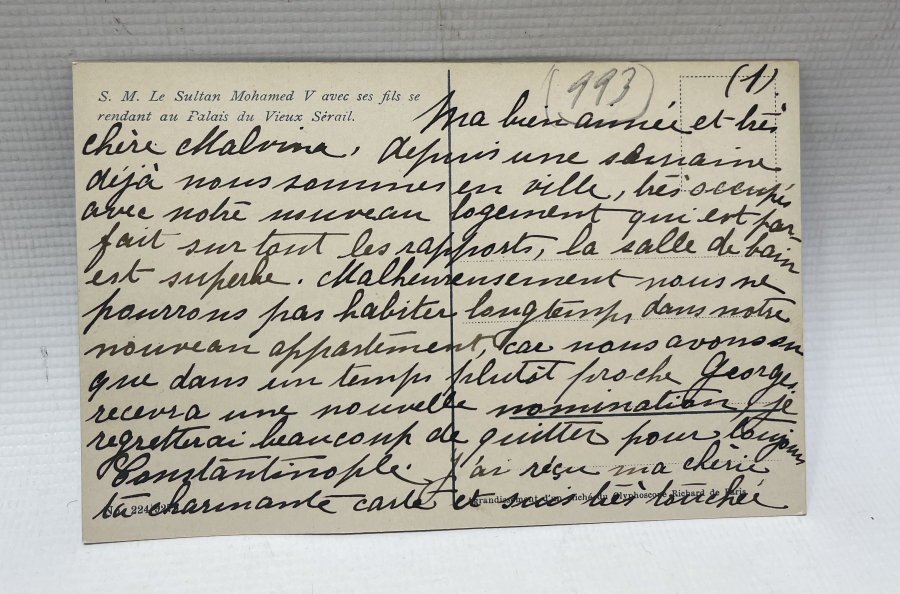 (1)
993
S. M. Le Sultan Mohamed V avec ses fils se
rendant au Palais du Vieux Sérail.
Ma bien année et très
chère Malvina, depuis une semaine
déjà nous sommes en ville, très occupés
avec notre nouveau logement qui est par-
fait sur tout les rapports, la salle de bain
est superbe. Malheureusement nous ne
pourrons pas habiter longtemps dans notre
nouveau appartement, car nous avons su
que dans un temps plutôt proche Georges
recevra une nouvelle nomination, je
regretterai beaucoup de quitter pour toujours
Constantinople. J'ai réçu ma chérie
ta charmante carte et suis très touchée
No. 224
Agrandissement d'un cliché du Glyphoscope Richard de Paris